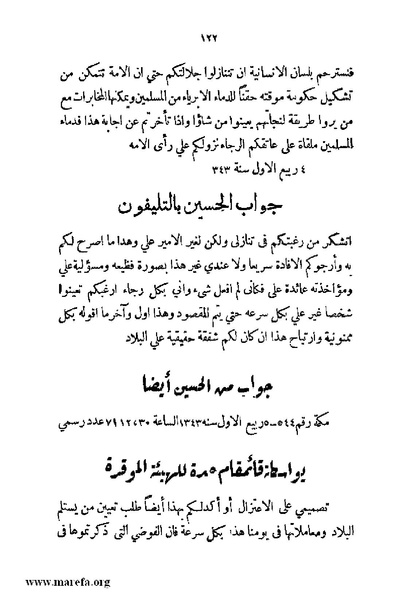 ١٢٢
فنسترحم بلسان الانسانية ان تتنازلوا جلالتكم حتي ان الامة تتمكن من
تشكيل حكومة موقته حقناً للدماء الابرياء من المسلمين ويمكنها المخابرات مع
من يروا طريقة لنجاتهم يعينوا من شاؤا واذا تأخرتم عن اجابة هذا فدماء
المسلمين ملقاة على عاتقكم الرجاء نزولكم علي رأى الامه
٤ ربيع الاول سنة ٣٤٣
جواب الحسين بالتليفون
اتشكر من رغبتكم فى تنازلى ولكن لغير الامير علي وهدا ما اصرح لكم
به وأرجوكم الافادة سريعا ولا عندي غير هذا بصورة قطيعه ومسؤلية علي
ومؤاخذته عائدة على فكانى لم افعل شىء وانى بكل رجاء ارغبكم تعينوا
شخصا غير علي بكل سرعه حتي يتم المقصود وهذا اول وآخر ما اقوله بكل
ممنونية وارتياح هذا ان كان لكم شفقة حقيقية علي البلاد
جواب من الحسين أيضا
مكة رقم ٥٤٤ـ٥ ربيع الاول سنه ١٣٤٣ الساعة ٧٩١٢،٣٠ عدد رسمي
بواسطة قائمقام جدة للهيئة الموقرة
تصميمي على الاعتزال أو أكدلكم بهذا أيضاً طلب تعيين من يستلم
البلاد ومعاملاتها فى يومنا هذا بكل سرعة فان الفوضي التى ذكرتموها فى
www.marefa.org